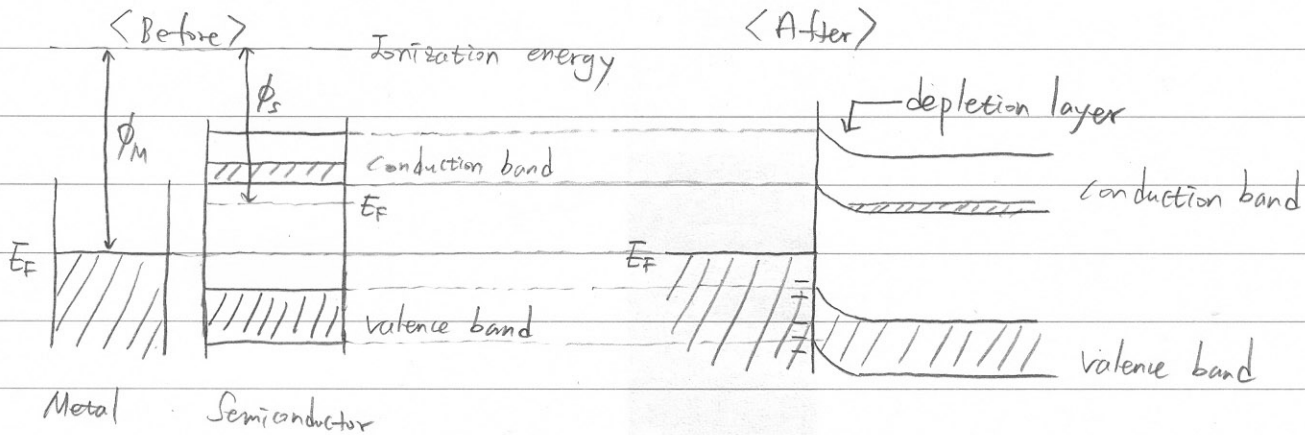 <Before>
Ionization energy
ϕM
ϕs
conduction band
EF
EF
valence band
Metal
Semiconductor
<After>
depletion layer
conduction band
EF
valence band